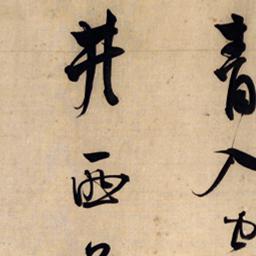 青入
井西